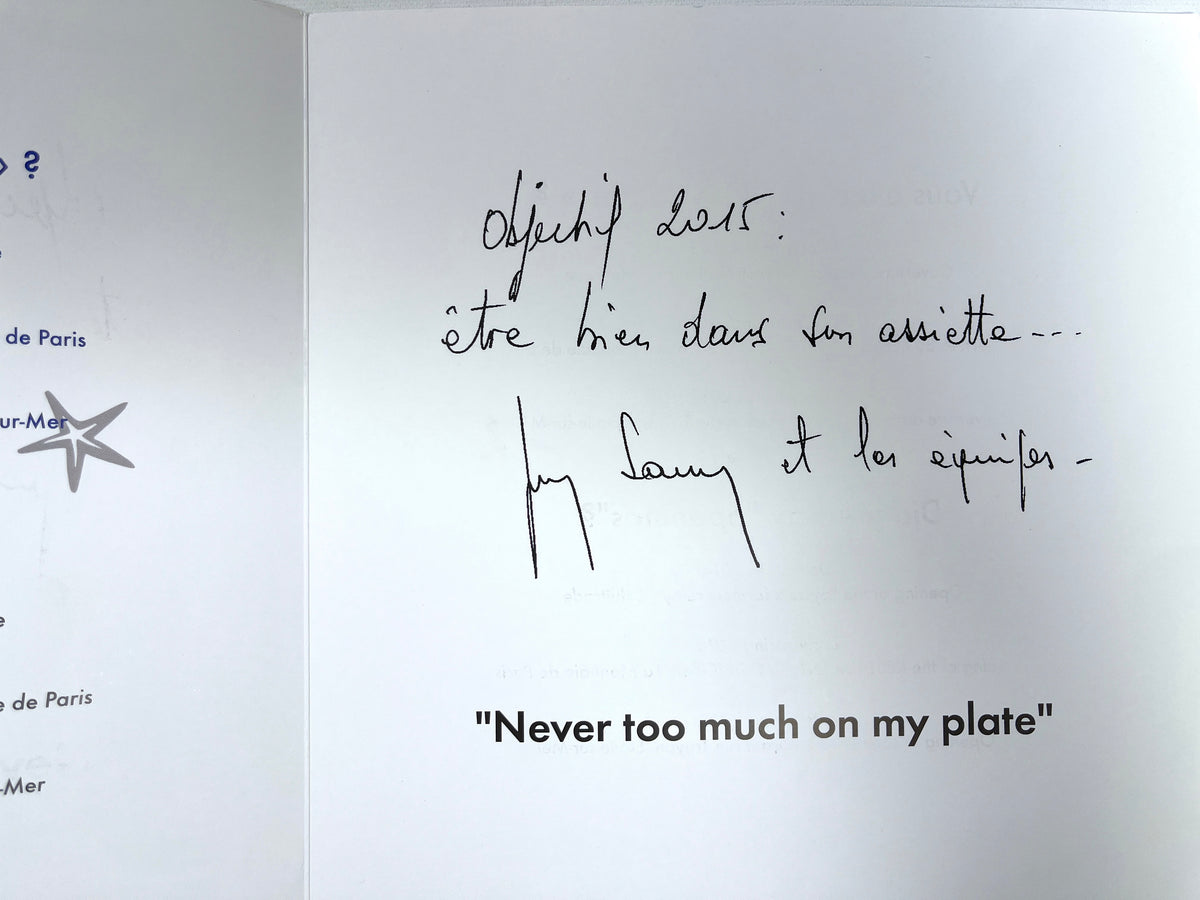 ?
de Paris
ur-Mer
e
e de Paris
-Mer
Objectif 2015 :
être bien dans son assiette ---
Guy Savoy et les équipes -
"Never too much on my plate"